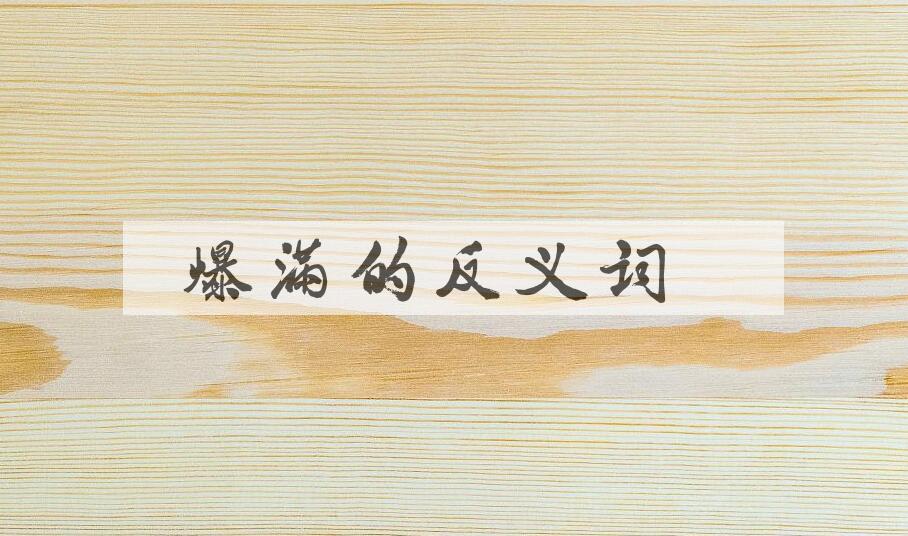 爆满的反义词